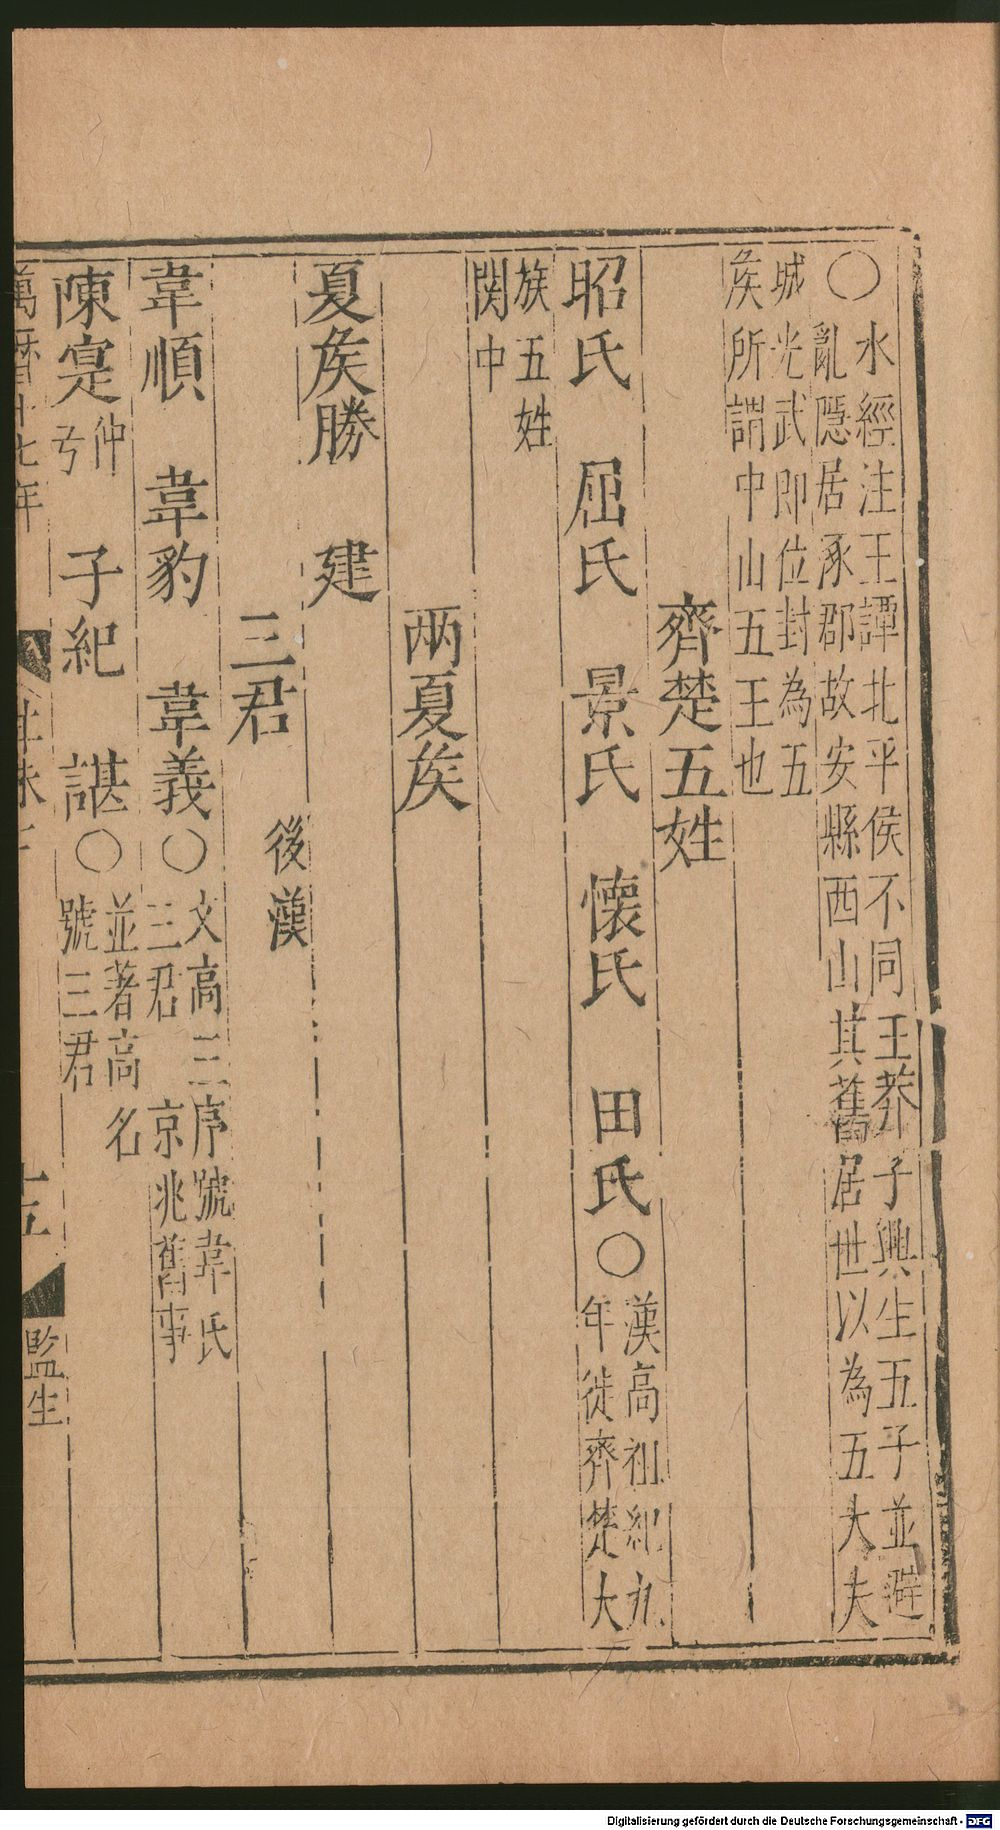 ○水經注王譚北平侯不同王莽子興生五子並避
亂隱居涿郡故安縣西山其舊居世以為五大夫
城光武即位封為五
矦所謂中山五王也
齊楚五姓
昭氏　屈氏　景氏　懷氏　田氏○漢高祖紀九
年徙齊楚大
族五姓
関中
两夏矦
夏矦勝　建
三君　後漢
韋順　韋豹　韋義○文高三序號韋氏
三君　京兆舊事
陳寔仲弓　子紀　諶○並著高名
號三君
萬曆十七年
十五
監生
Digitalisierung gefördert durch die Deutsche Forschungsgemeinschaft - DFG